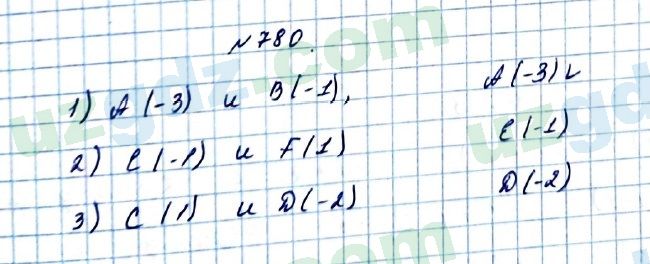 №780.
1) A(-3) и B(-1), A(-3)
2) E(-1) и F(1) E(-1)
3) C(1) и D(-2) D(-2)
uzgdz.com